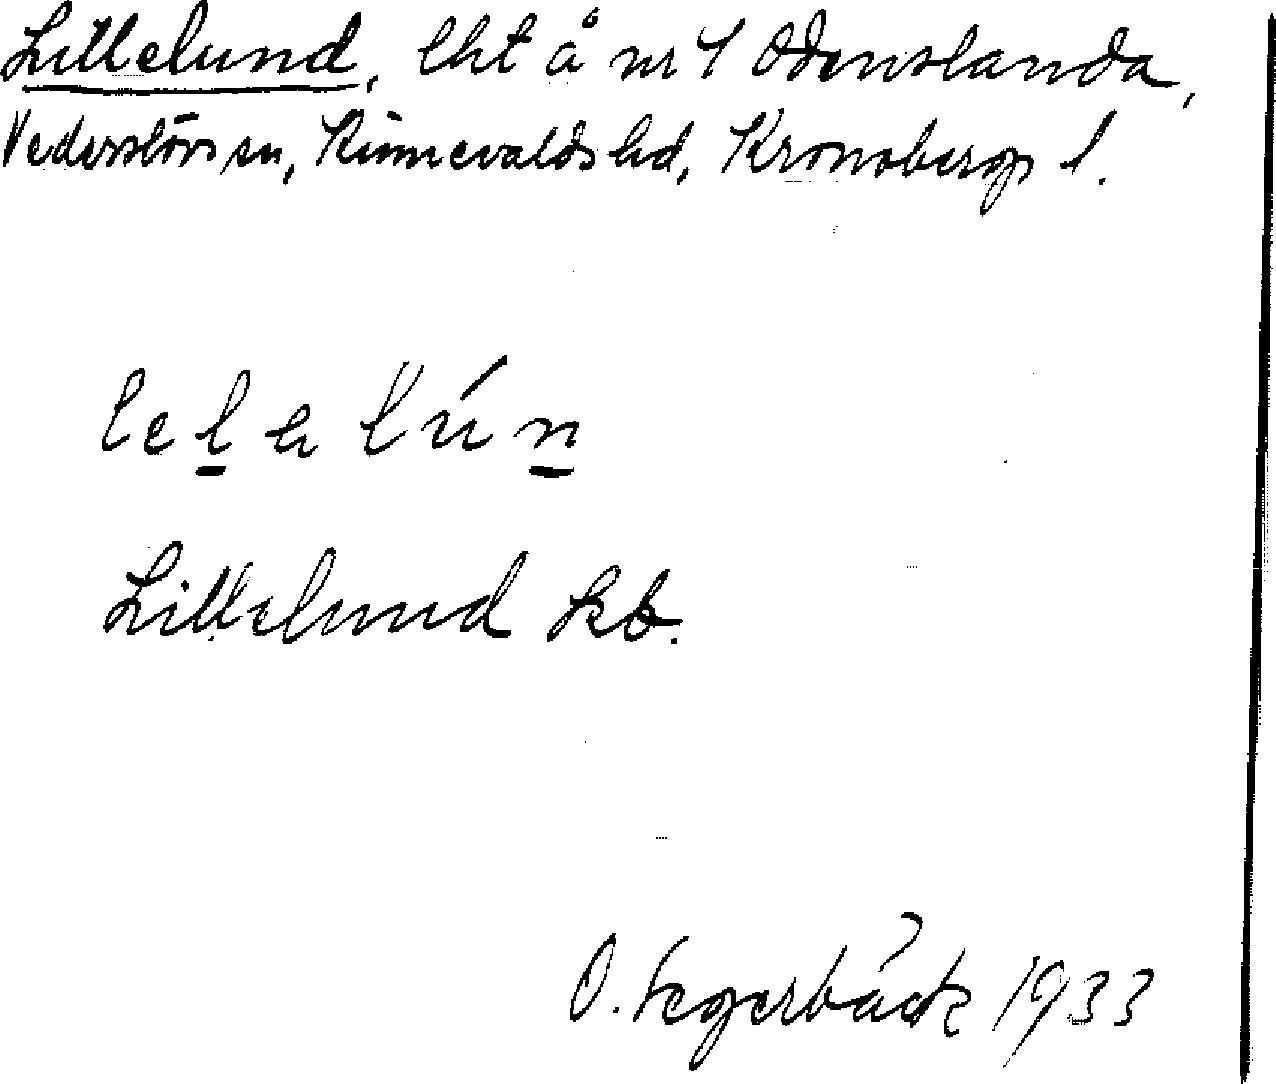 Lillelund, lht å nr 1 Odenslanda,
Vederslövs sn, Kinnevalds hd, Kronobergs l.
Lillelund kb.
O. Segerbäck 1933